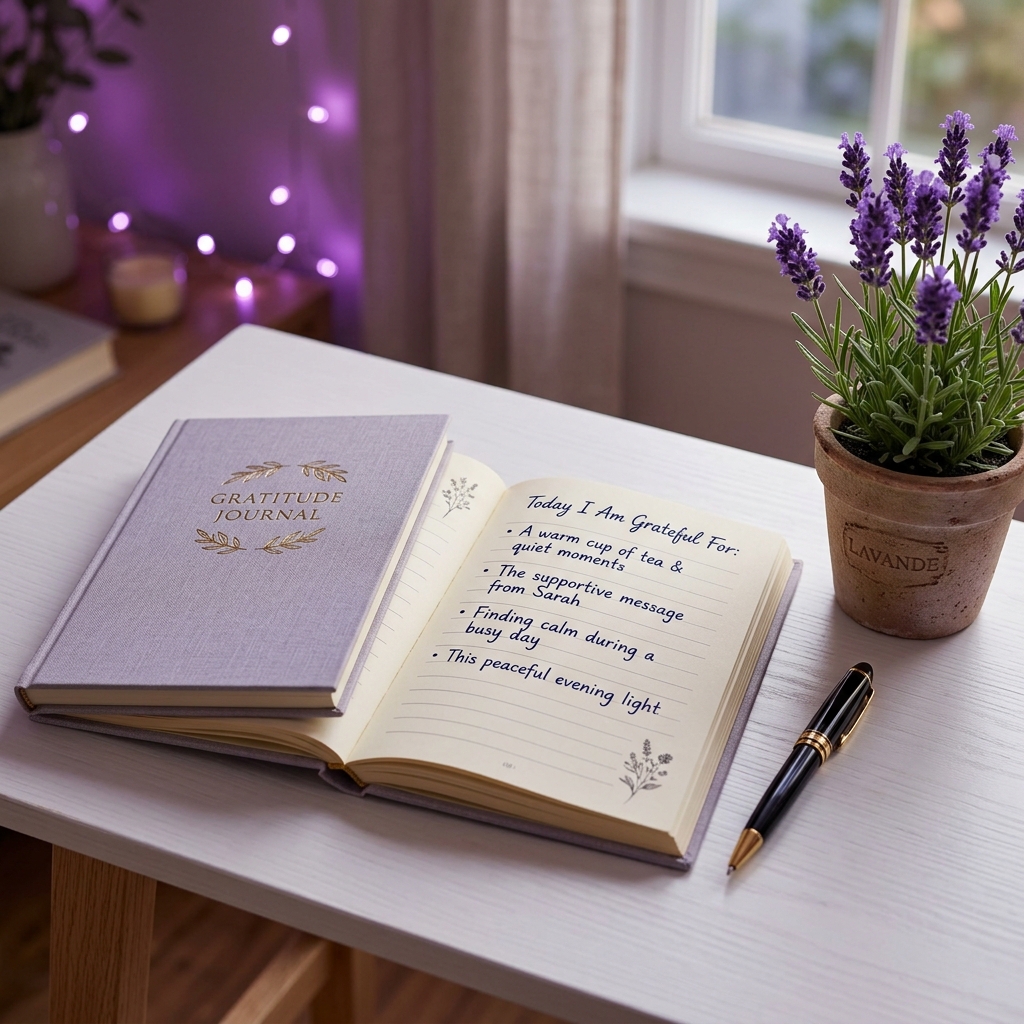 GRATITUDE
JOURNAL
Today I Am Grateful For:
• A warm cup of tea &
quiet moments
• The supportive message
from Sarah
• Finding calm during a
busy day
• This peaceful evening light
LAVANDE